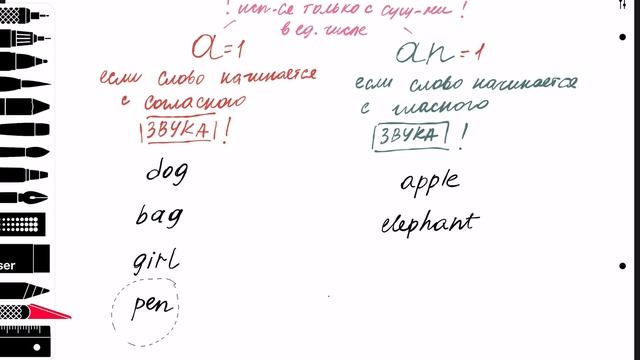 ! исп-ся только с сущ-ми !
в ед. числе
a=1
если слово начинается
с согласного
ЗВУКА !
dog
bag
girl
pen
an=1
если слово начинается
с гласного
ЗВУКА !
apple
elephant
ser